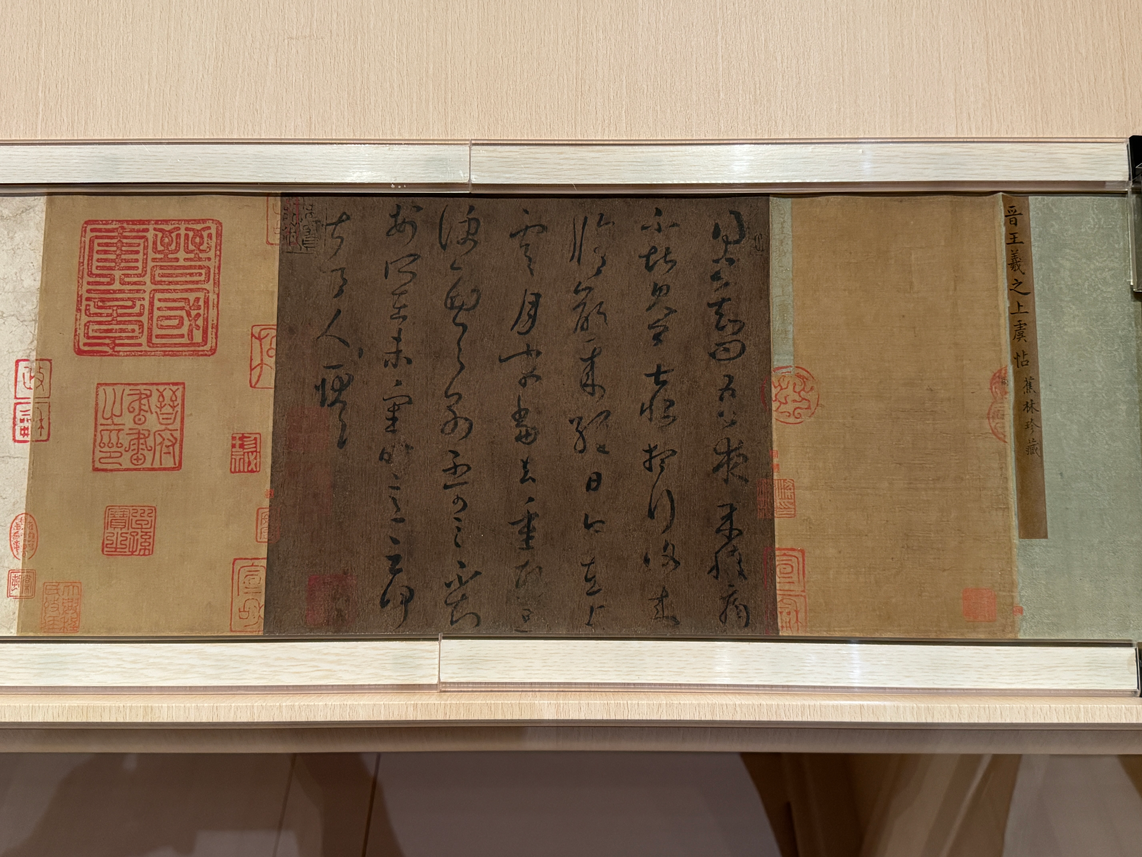 晉王羲之上虞帖 蕉林珍藏
得書知問吾夜來腹痛
不堪見卿甚恨想行復來
脩齡來經日今在上
虞月末當去重熙旦
便西與別不可言不知
安所在未審時意云何
甚令人耿耿
晉國奎章
晉府書畫之印
政和
宣和